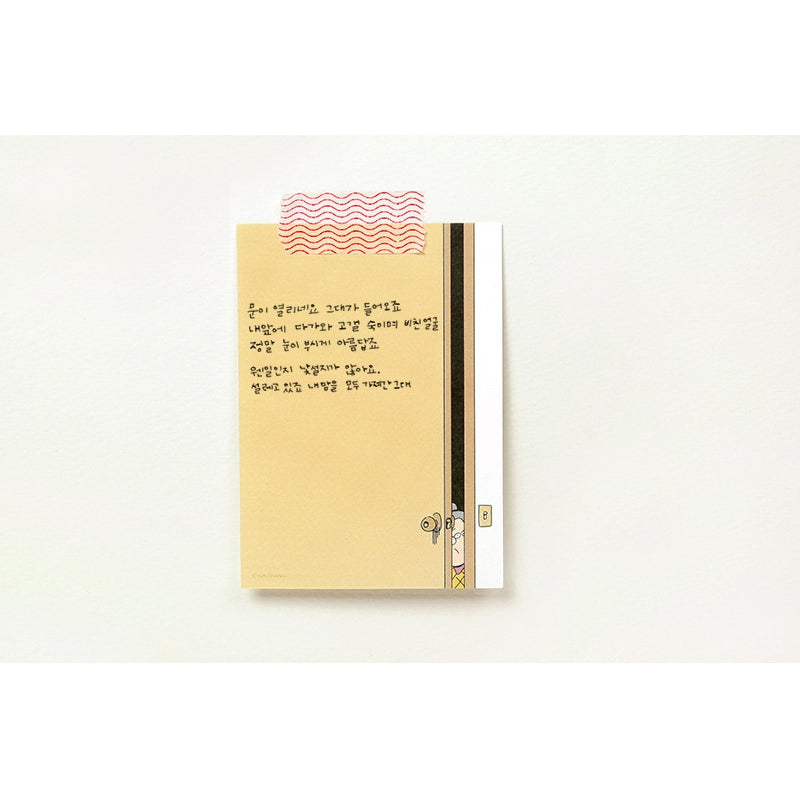 문이 열리네요 그대가 들어오죠
내앞에 다가와 고갤 숙이며 비친얼굴
정말 눈이 부시게 아름답죠
웬일인지 낯설지가 않아요.
설레고 있죠 내 맘을 모두 가져간 그대